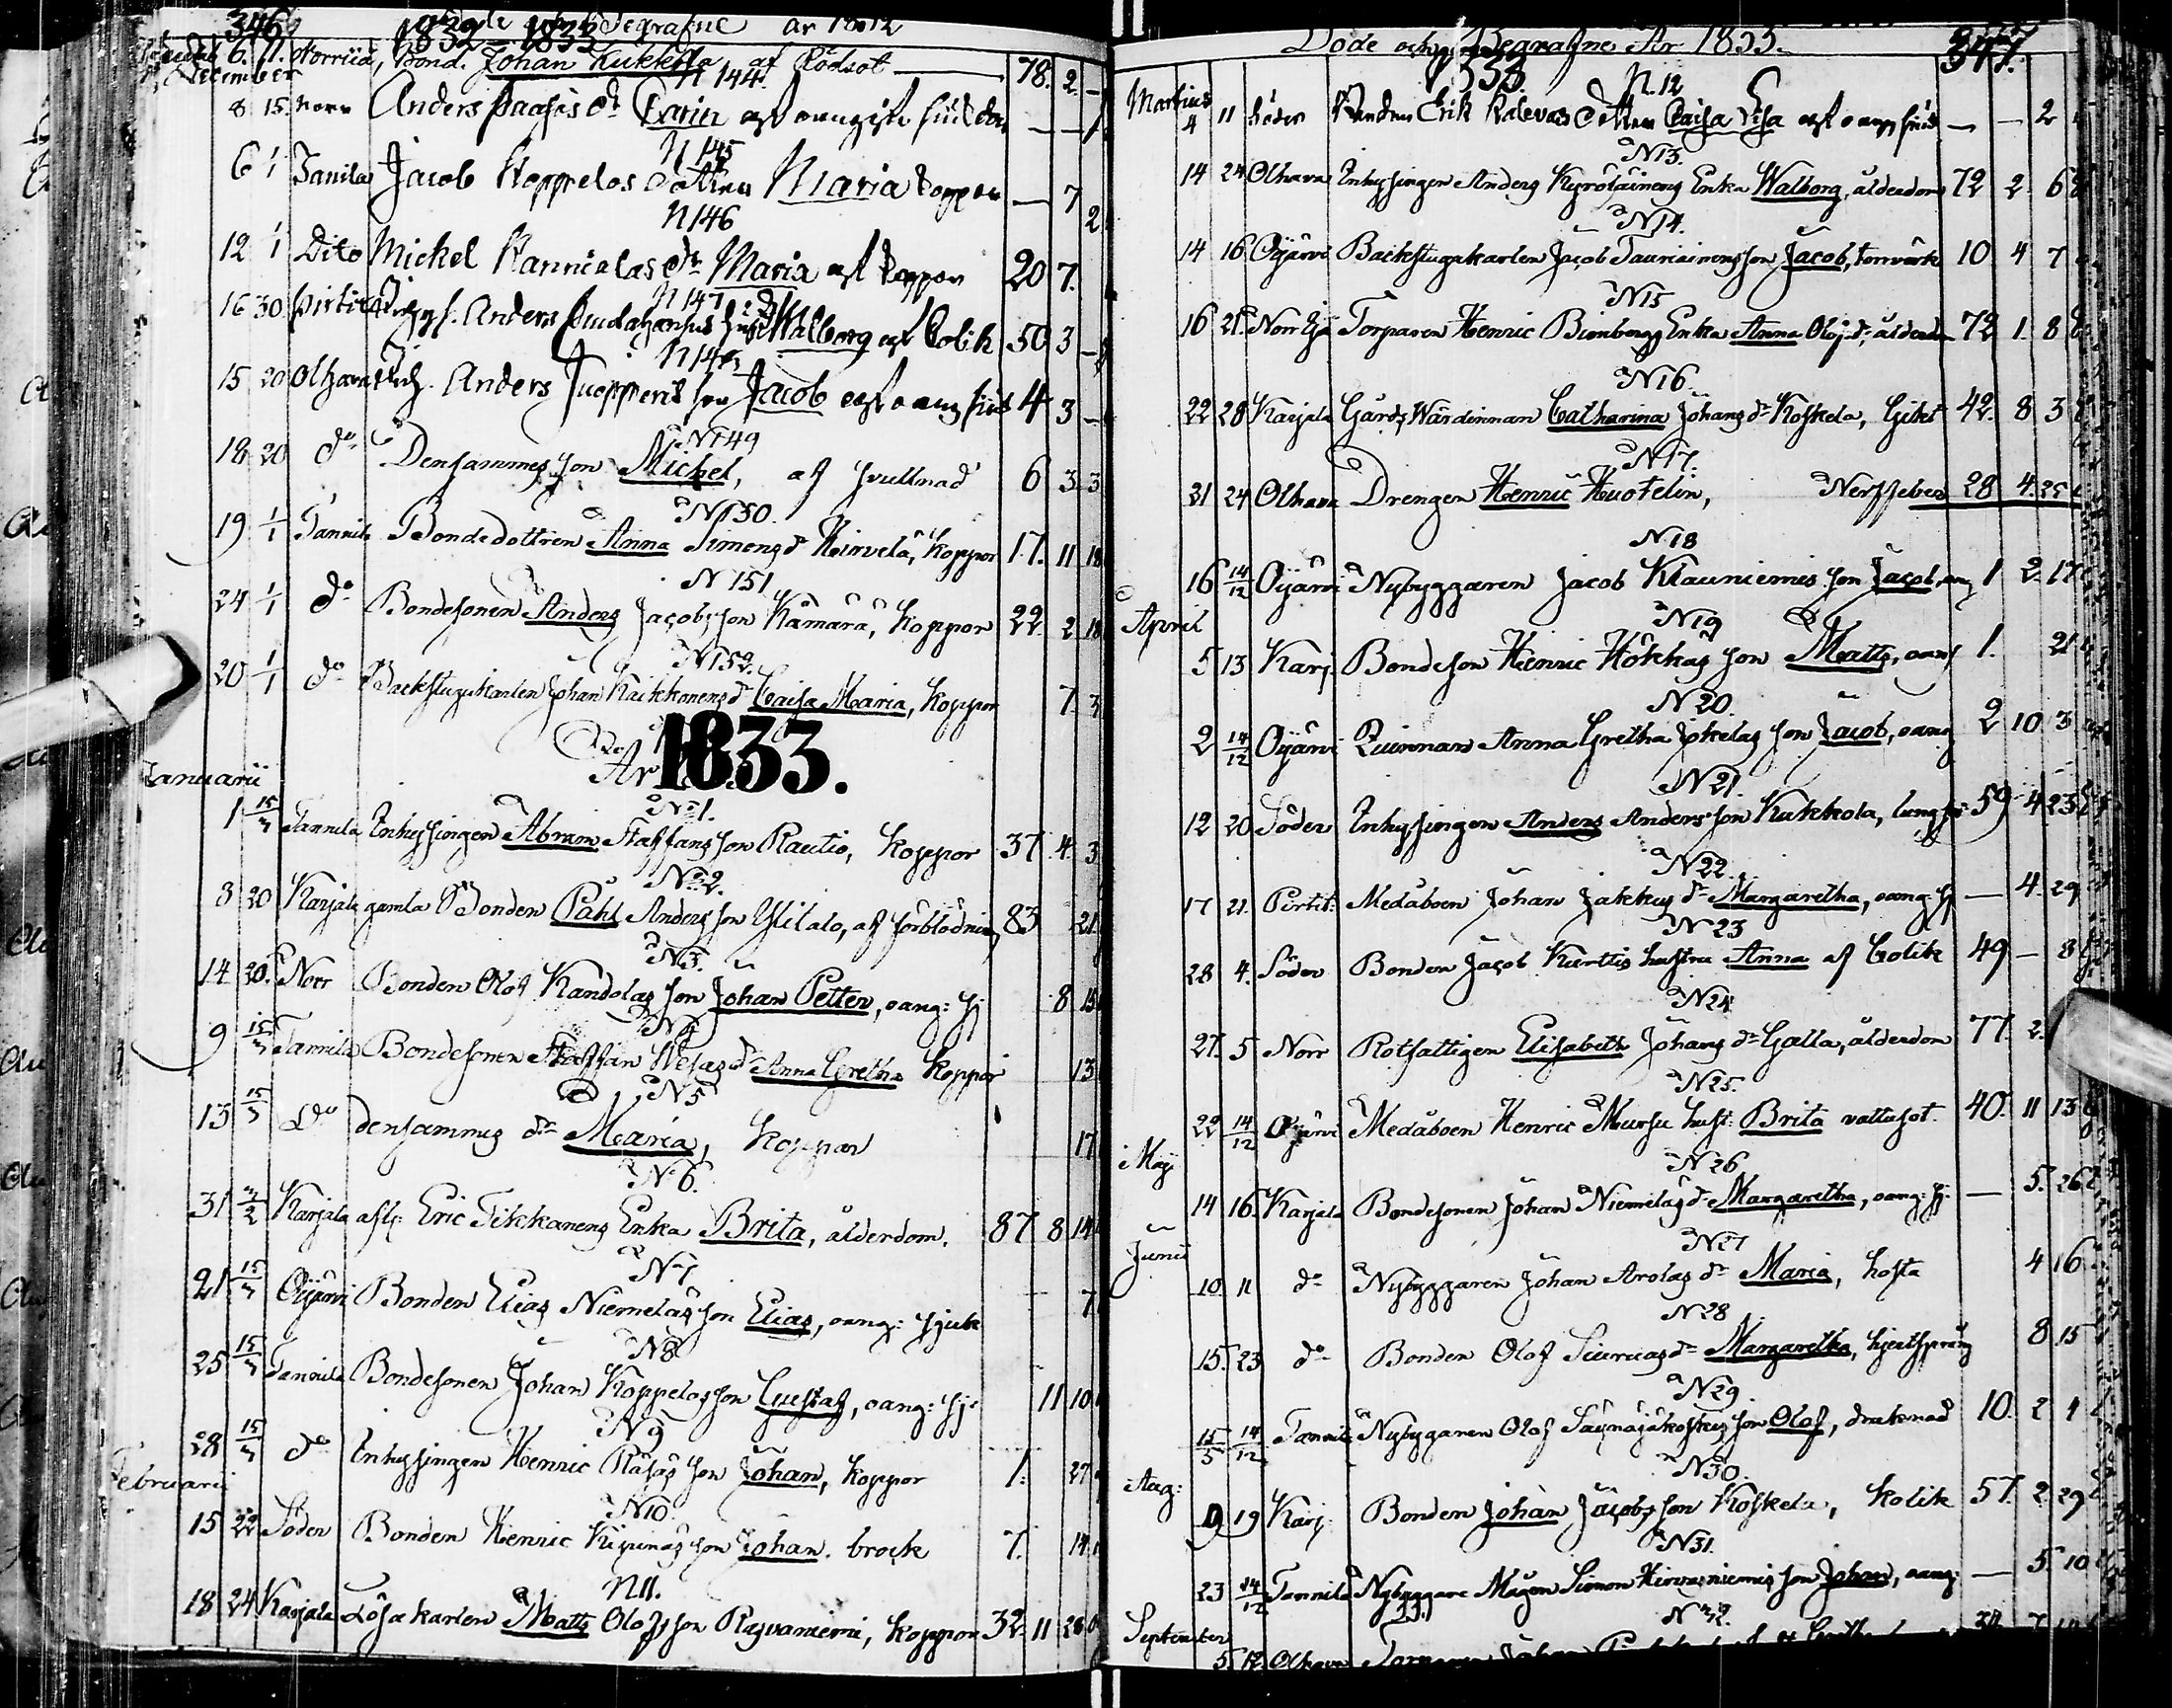 346
1832 1833 Begrafne år 1832
December
6. 11. Norriiå, Bond. Johan Kukkola af Rödsot — 78. 2. —
N 144.
8 15. Norr Anders Paasos dr Carin af oangifn siukdom — —
N 145
6 1/1 Tanila Jacob Koppelos dottren Maria koppor — 7 2
N 146
12 1/1 Dito Michel Kannialas dr Maria af koppor 20 7.
N 147
16 30 Anders hust. Walborg af Colik 50 3 —
N 148
15 20 Olhava Anders son Jacob af oang siuk 4 3 —
N 149
18 20 do Densammes son Michel, af svullnad 6 3 3
N 150.
19 1/1 Tannila Bondedottren Anna Simons dr Hirvelä, koppor 17. 11 18
N 151
24 1/1 do Bondesonen Anders Jacobsson Kämärä, koppor 22. 2 18
N 152.
20 1/1 do Backstugukarlen Johan Kaikkonens dr Caisa Maria, koppor 7. 3
År 1833.
Januarii
No 1.
1 15/3 Tannila Inhysingen Abram Staffansson Rautio, koppor 37 4. 3
No 2.
3 20 Karjala gamla Bonden Påhl Andersson Ylitalo, af förblödning 83 21
N 3.
14 20. Norr Bonden Olof Kandolas son Johan Petter, oang: sj 8 15
N 4
9 15/3 Tannila Bondesonen Staffan Wesas dr Anna Gretha koppor 13
N 5
13 15/3 Do densammes dr Maria, koppor 17
N 6.
31 3/2 Karjala afl: Eric Tikkanens Enka Brita, ålderdom. 87 8 14
N 7
21 15/3 Oijärvi Bonden Elias Niemeläs son Elias, oang: sjuk 7
N 8
25 15/3 Tannila Bondesonen Johan Koppelos son Gustaf, oang: sj: 11 10
N 9
28 15/3 do Inhysingen Henric Räsäs son Johan, koppor 1. 27
Februarii
N 10.
15 22 Söder Bonden Henric Kipinas son Johan. brock 7. 14
N 11.
18 24 Karjala Lösa karlen Matts Olofsson Rajvaniemi, koppor 32 11 28
Döde och Begrafne År 1833.
347.
1833.
N. 12
Martius
4 11 Söder Bonden Erik Kalevas dottren Caisa Lisa af oang siuk — — 2
N 13.
14 24 Olhava Inhysingen Anders Kyröläinens Enka Walborg, ålderdom 72 2 6
N 14.
14 16 Oijärvi Backstugukarlen Jacob Tauriainens son Jacob, torrvärk 10 4 7
N 15
16 21. Norr Ijo Torparen Henric Bionbergs Enka Anna Olofsd:, ålderdom 72 1. 8
N 16.
22 28 Karjala Gårds Wärdinnan Catharina Johans dr Koskela, Gikt 42. 8 3
N 17.
21 24 Olhava Drengen Henric Huotelin, Nerffeber 28 4. 25
N 18
16 14/12 Oijärvi Nybyggaren Jacob Klauniemis son Jacob, oang 1 2 17
April
N 19
5 13 Karj. Bondeson Henric Hökkas son Matts, oang 1. 21
N 20.
2 14/12 Oijärvi Quinnans Anna Gretha Jokelas son Jacob, oang 2 10 3
N 21.
12 20 Söder Inhysingen Anders Andersson Kukkola, lungsot 59 4 23
N 22.
17 21. Pirtit: Medåboen Johan Jakkus dr Margaretha, oang: sj — 4. 29
N 23
28 4. Söder Bonden Jacob Kurttis hustru Anna af Colik 49 — 8
N 24
27. 5 Norr Rotfattigen Elisabeth Johans dr Galla, ålderdom 77. 2.
N 25.
22 14/12 Oijärvi Medåboen Henric Mursu hust: Brita vattusot. 40. 11 13
Maji
N 26
14 16. Karjala Bondesonen Johan Niemeläs dr Margaretha, oang: sj. — 5. 26
Junii
N 27
10 11 do Nybyggaren Johan Arolas dr Maria, hosta 4 16
N 28
15. 23 do Bonden Olof Siuruas dr Margaretha, hjertsprång 8. 15
N 29
15/5 14/12 Tannila Nybygaren Olof Säynäjäkoskis son Olof, drunknad 10. 2 1
Aug:
N 30.
9 19 Karj: Bonden Johan Jacobsson Koskela, kolik 57. 2. 29
N 31.
23 14/12 Tannila Nybyggare Mågen Simon Hirvasniemis son Johan, oang: — 5 10
September
N 32.
5. 12. Olhava Torparen Johan